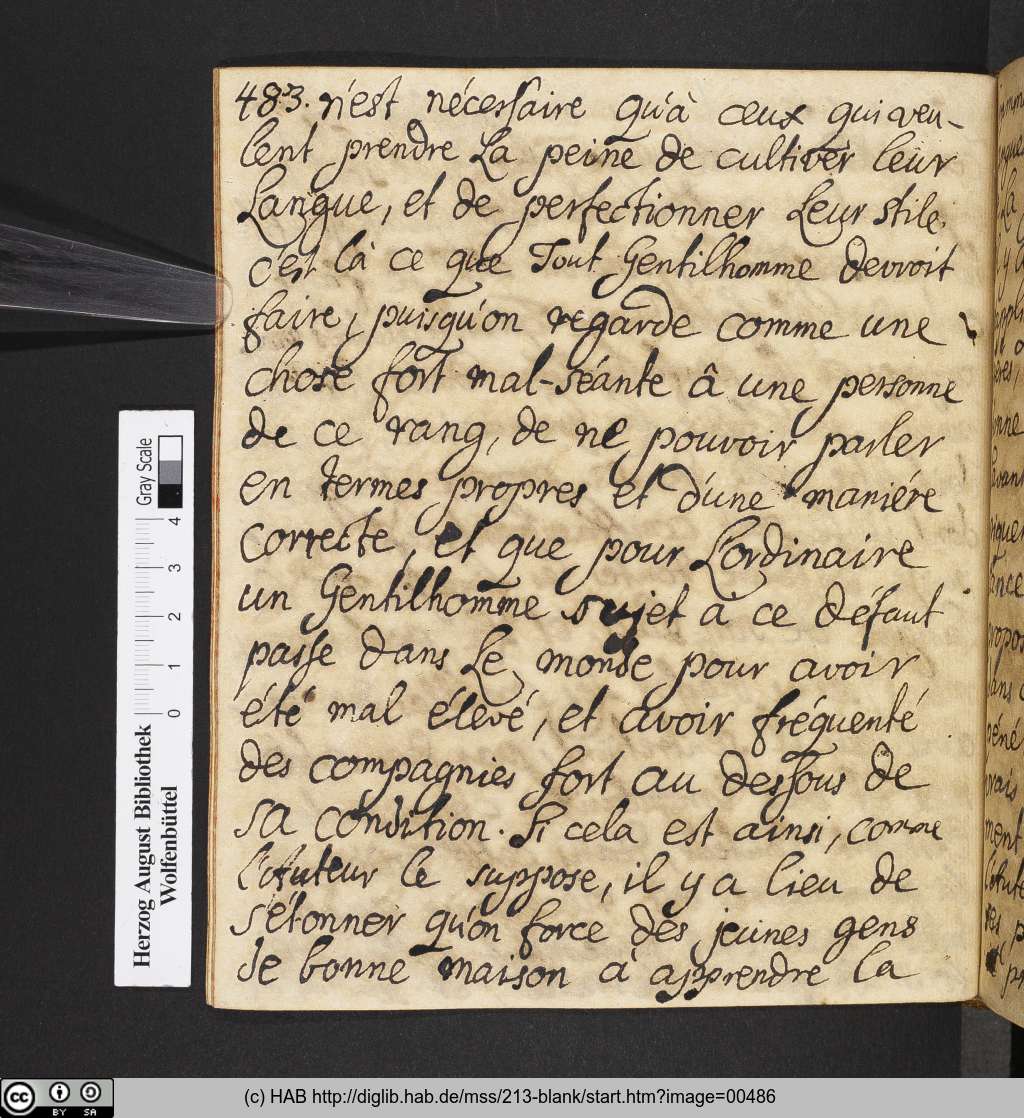 483. n'est nécessaire qu'à ceux qui veu-
lent prendre La peine de cultiver leur
Langue, et de perfectionner Leur stile.
c'est là ce que Tout Gentilhomme devroit
faire, puisqu'on regarde comme une
chose fort mal-séante â une personne
de ce rang, de ne pouvoir parler
en termes propres et d'une maniére
correcte, et que pour L'ordinaire
un Gentilhomme sujet à ce défaut
passe dans Le monde pour avoir
été mal élevé, et avoir fréquenté
des compagnies fort au dessous de
sa condition. Si cela est ainsi, comme
l'Auteur le suppose, il y a lieu de
s'étonner qu'on force des jeunes gens
de bonne maison à apprendre la
Herzog August Bibliothek
Wolfenbüttel
0 1 2 3 4
Gray Scale
BY SA
(c) HAB http://diglib.hab.de/mss/213-blank/start.htm?image=00486